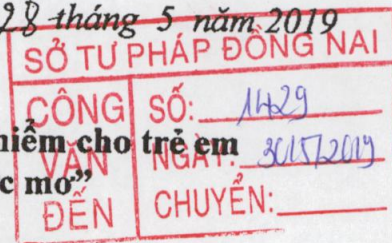 28 tháng 5 năm 2019
SỞ TƯ PHÁP ĐỒNG NAI
CÔNG VĂN ĐẾN
SỐ: 1429
NGÀY: 30/5/2019
CHUYỂN:
hiểm cho trẻ em
c mơ”